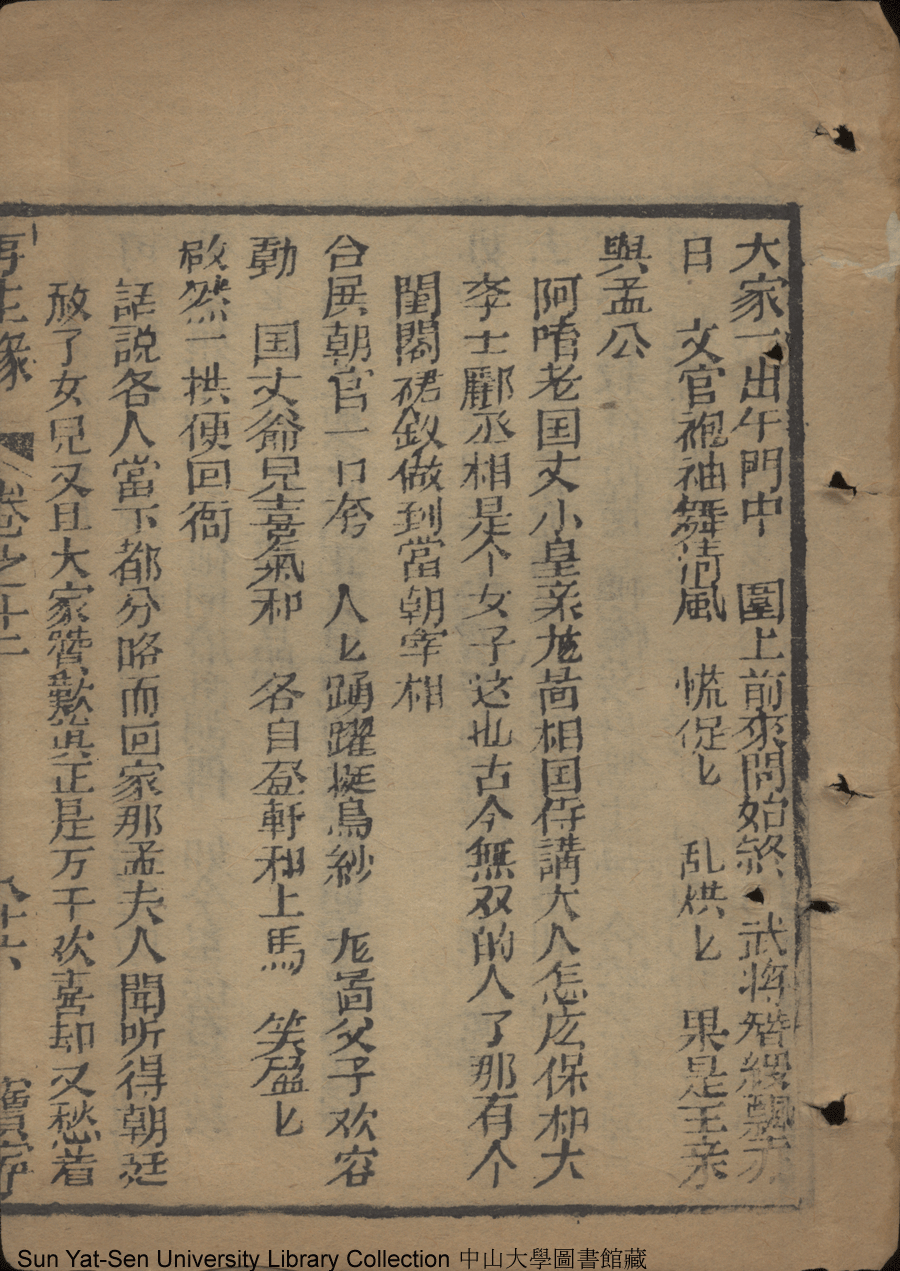 大家一出午門中　圍上前來問始終　武將簪纓飄
日　文官袍袖舞清風　慌促匕　乱烘匕　果是王亲
與孟公
阿唷老国丈小皇亲尨啚相国侍講大人怎広保和大
李士酈丞相是个女子这也古今無双的人了那有个
閨閣裙釵做到當朝宰相
合展朝官一口夸　人匕踊躍挺烏紗　尨啚父子欢容
動　国丈爺兒喜氣和　各自登軒和上馬　笑盈匕
欣然一拱便回衙
話説各人當下都分路而回家那孟夫人聞听得朝廷
放了女兒又且大家贊歎真正是万千欢喜却又愁着
再生緣　卷之十二　八十六　寳寧
Sun Yat-Sen University Library Collection 中山大學圖書館藏